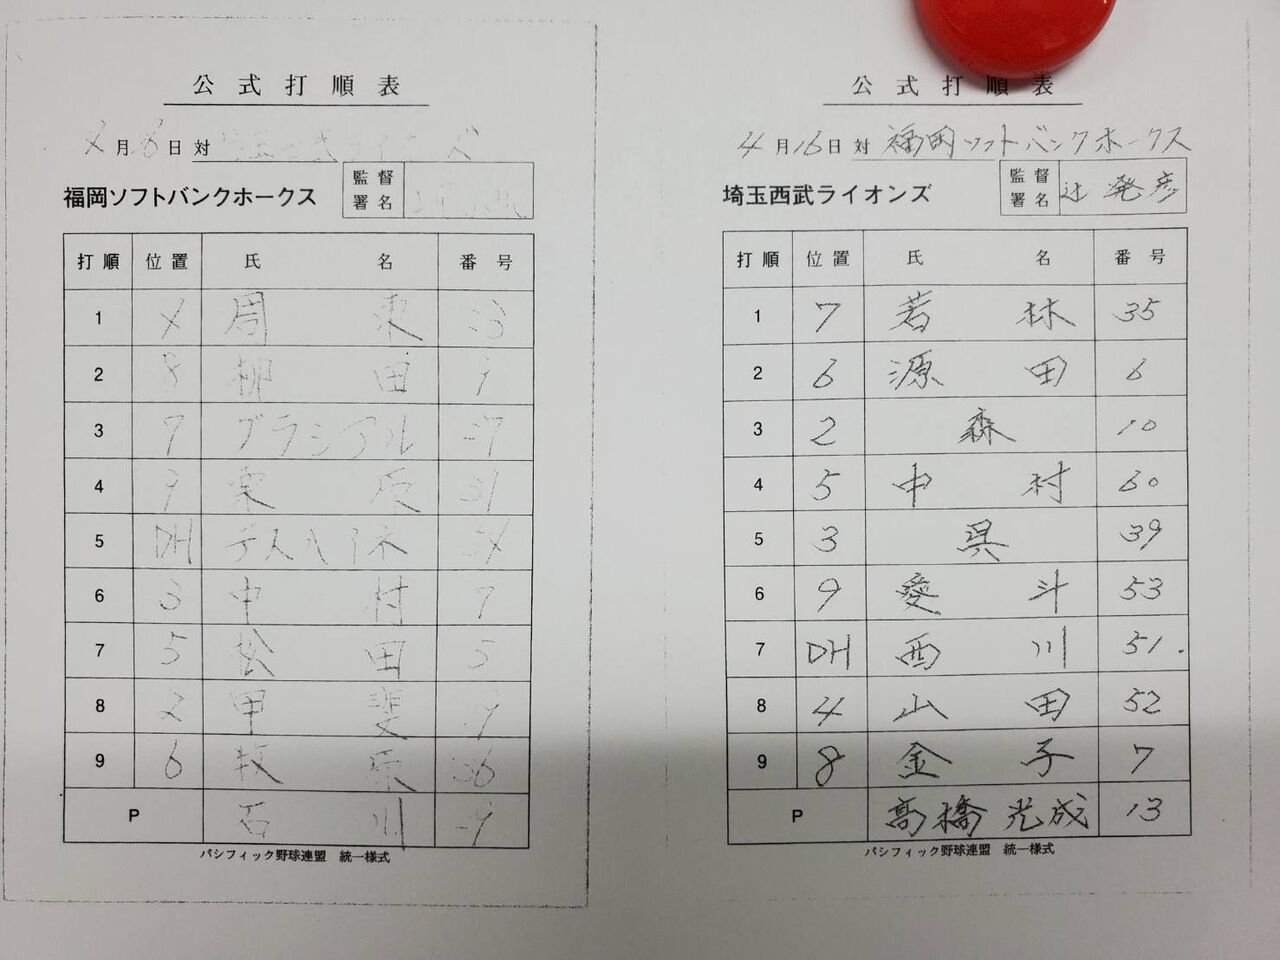 公式打順表
4月16日対
福岡ソフトバンクホークス
監督署名
打順 位置 氏名 番号
1 4 周東
2 8 柳田 9
3 7 グラシアル 27
4 9 栗原 31
5 DH デスパイネ 54
6 3 中村 7
7 5 松田 5
8 2 甲斐 19
9 6 牧原 36
P 石川 29
パシフィック野球連盟 統一様式
公式打順表
4月16日対 福岡ソフトバンクホークス
埼玉西武ライオンズ
監督署名 辻 発彦
打順 位置 氏名 番号
1 7 若林 35
2 6 源田 6
3 2 森 10
4 5 中村 60
5 3 呉 39
6 9 愛斗 53
7 DH 西川 51
8 4 山田 52
9 8 金子 7
P 髙橋光成 13
パシフィック野球連盟 統一様式